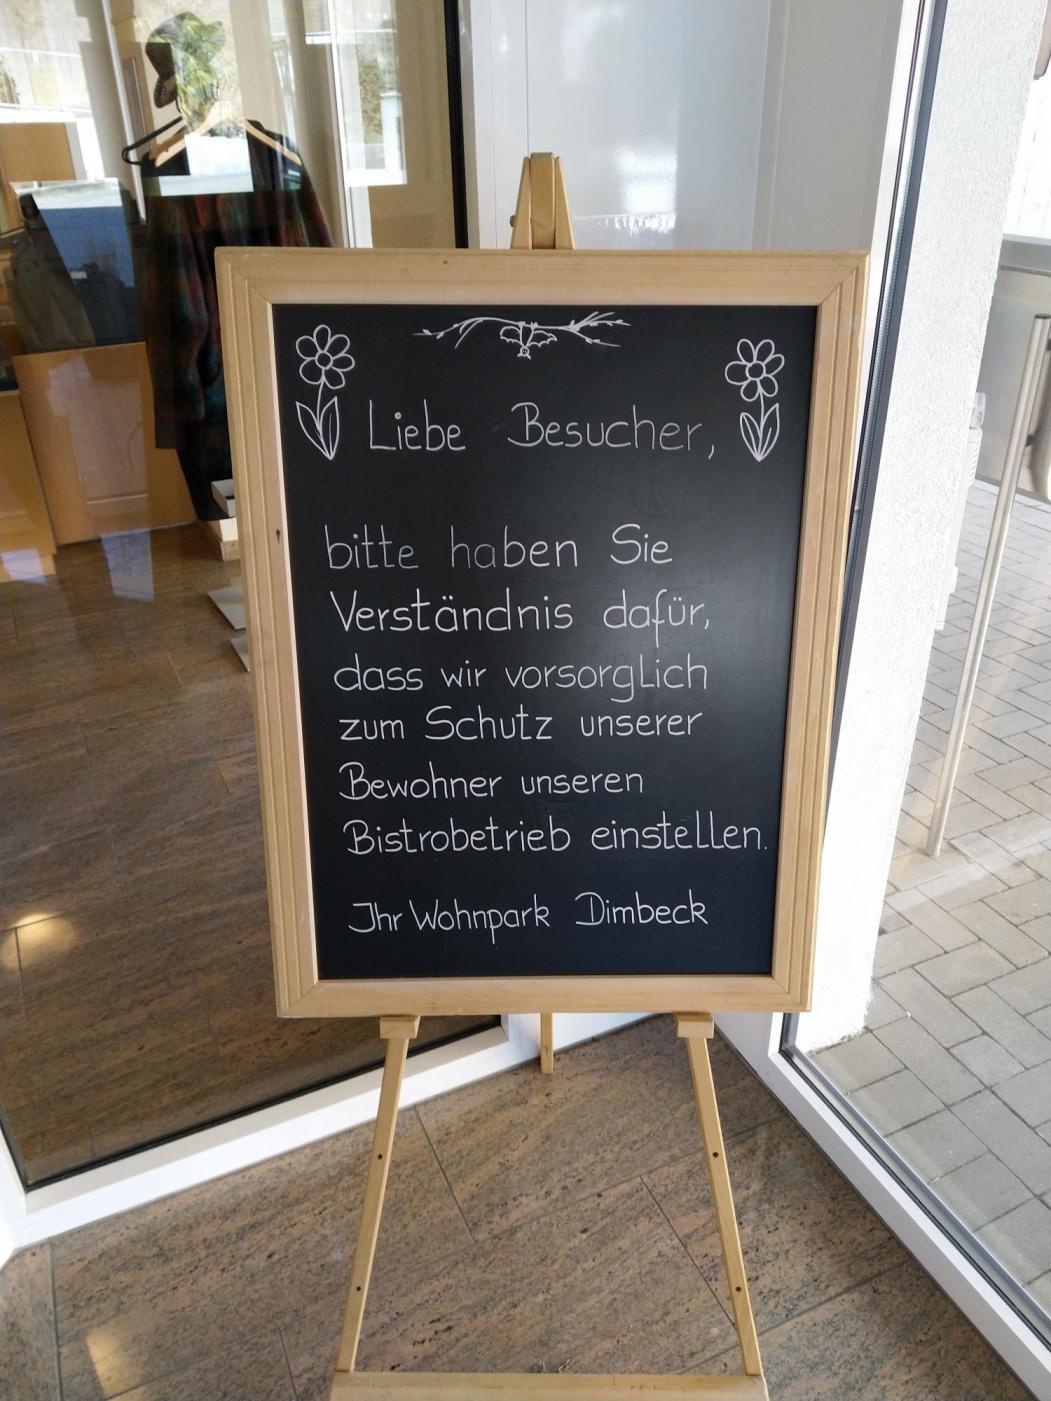 Liebe Besucher,
bitte haben Sie
Verständnis dafür,
dass wir vorsorglich
zum Schutz unserer
Bewohner unseren
Bistrobetrieb einstellen.
Ihr Wohnpark Dimbeck